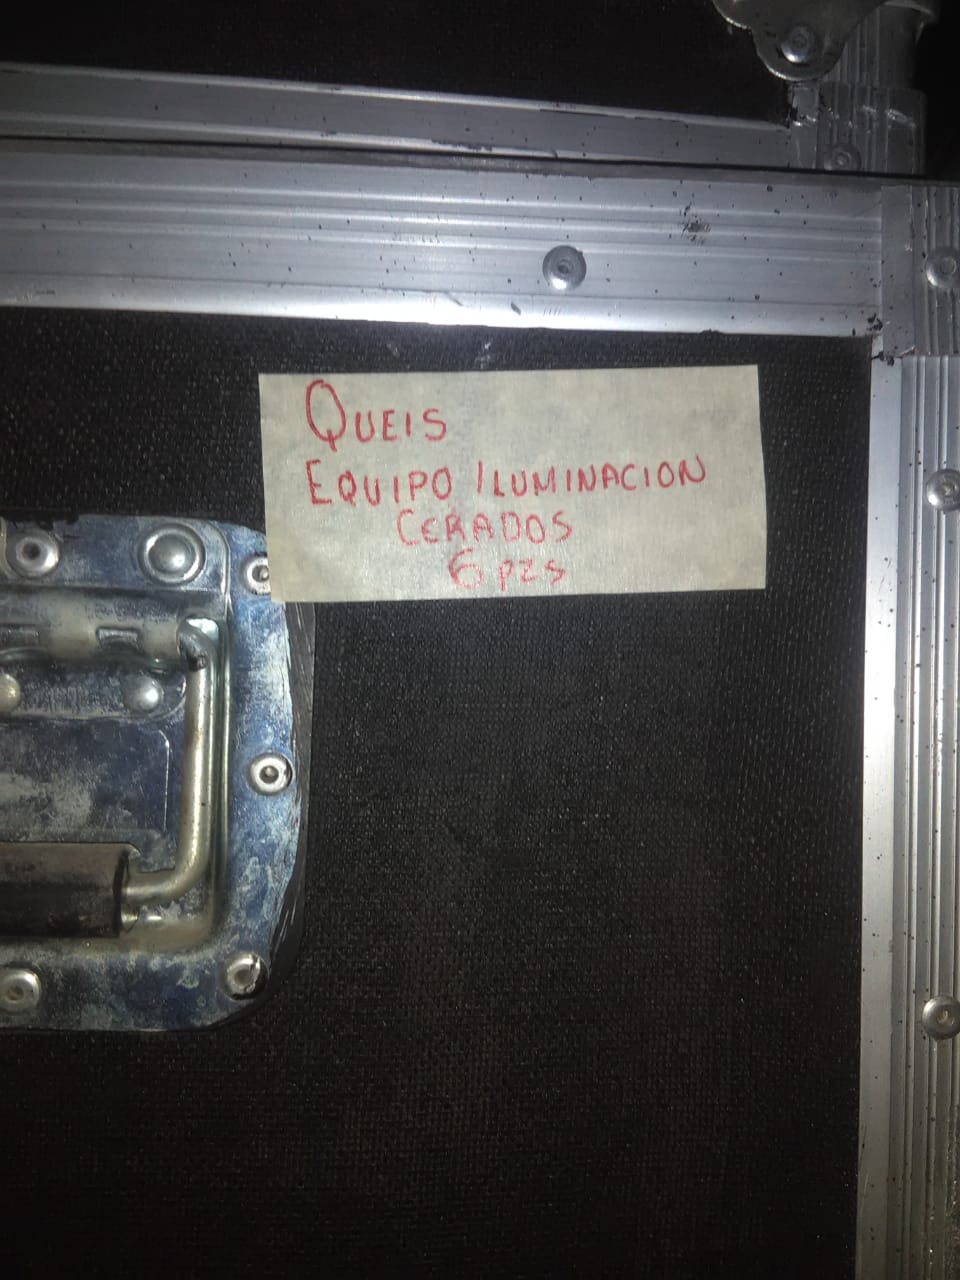 QUEIS
EQUIPO ILUMINACION
CERADOS
6 pzs